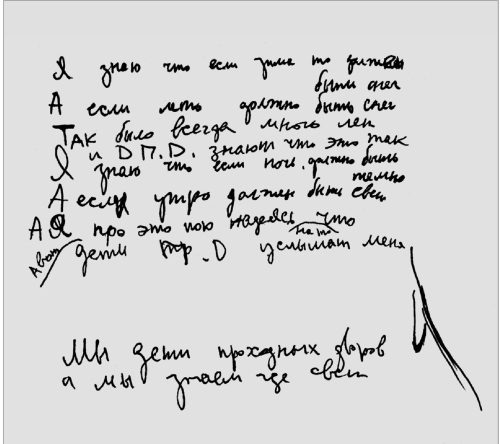 Я знаю что если зима то должен
быть снег
А если лето должно быть снег
Так было всегда много лет
и Д.П.Д. знают что это так
Я знаю что если ночь должно быть
темно
А если утро должен быть свет
А Я про это пою надеясь что
дети пр.D услышат меня
Мы дети проходных дворов
а мы знаем где свет